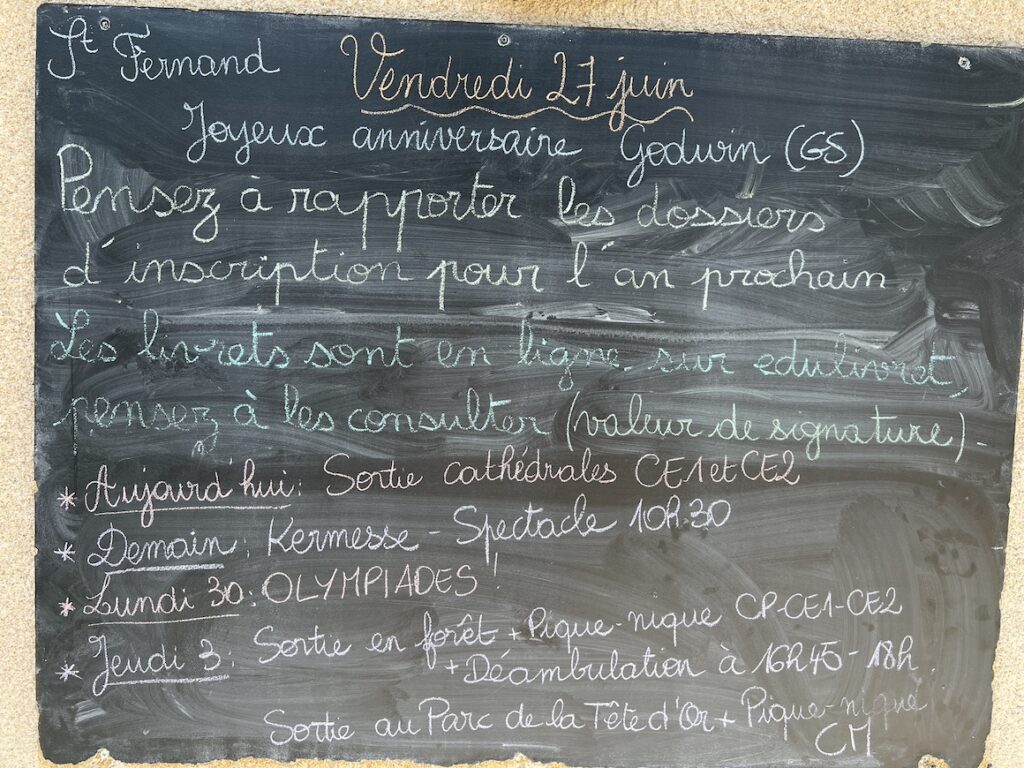 St Fernand
Vendredi 27 juin
Joyeux anniversaire Godwin (GS)
Pensez à rapporter les dossiers
d'inscription pour l'an prochain
Les livrets sont en ligne sur edulivret,
pensez à les consulter (valeur de signature).
* Aujourd'hui: Sortie cathédrales CE1 et CE2
* Demain: Kermesse - Spectacle 10h30
* Lundi 30: OLYMPIADES !
* Jeudi 3: Sortie en forêt + Pique-nique CP-CE1-CE2
+ Déambulation à 16h45-18h.
Sortie au Parc de la Tête d'Or + Pique-nique
CM